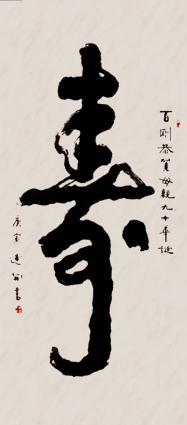 壽
百剛恭賀母親九十華誕
庚寅 逸翁書